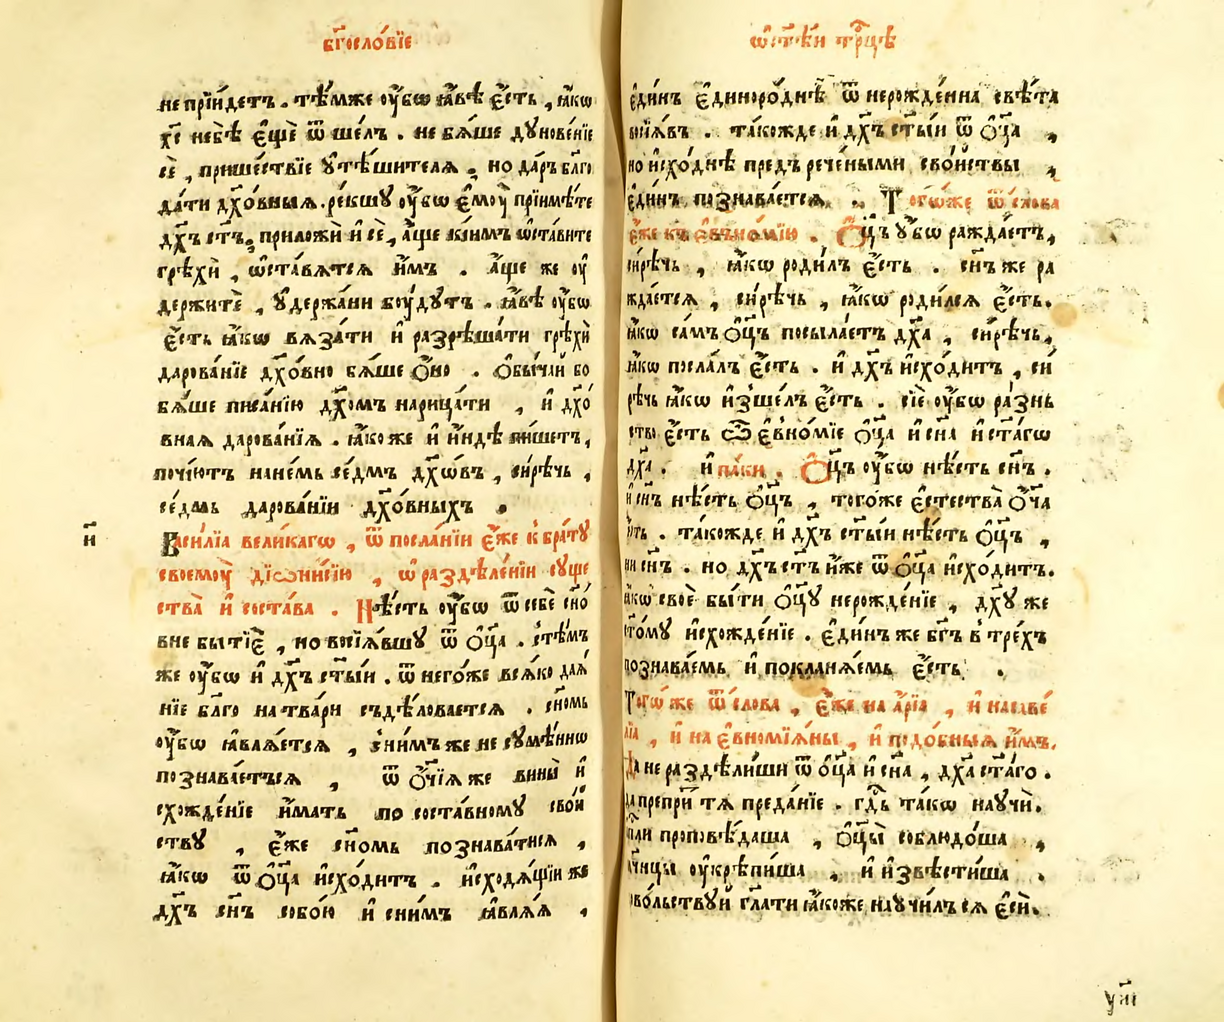 бг҃осло́вїе
не прїи́детъ . тѣ́мже ᲂу҆́бѡ ꙗ҆́вѣ є҆́сть , ꙗ҆́кѡ
хс҃ не ᲂу҆ѣ є҆щѐ ѿшє́лъ . не бѧ́ше дꙋнове́нїе
сѐ , прише́ствїе ᲂу҆тѣ́шителѧ , но да́ръ бл҃го
да́ти дх҃о́вныѧ . ре́кшꙋ ᲂу҆́бѡ є҆мᲂу҆̀ прїимѣ́те
дх҃ъ ст҃ъ , приложѝ и҆ сѐ , а҆́ще ки́мъ ѡ҆ста́вите
грѣхѝ , ѡ҆ста́вѧтсѧ и҆̀мъ . а҆́ще же ᲂу҆
держитѐ , ᲂу҆держа́ни бꙋ́дꙋтъ . ꙗ҆́вѣ ᲂу҆́бѡ
є҆́сть ꙗ҆́кѡ вѧза́ти и҆ разрѣша́ти грѣхѝ
дарова́нїе дх҃о́вно бѧ́ше ѻ҆́но . ѻ҆бы́чаи бо
бѧ́ше писа́нїю дх҃омъ нарица́ти , и҆ дх҃о́
внаѧ дарова́нїѧ . ꙗ҆́коже и҆ и҆́ндѣ пи́шетъ ,
почі́ютъ на не́мь се́дмъ дх҃ѡ́въ , си́рѣчь ,
се́дмь дарова́нїи дх҃о́вныхъ .
и҃
Васи́лїа вели́кагѡ , ѿ посла́нїи є҆́же к бра́тꙋ
своемᲂу҆̀ дїѡни́сїю , ѡ҆ раздѣле́нїи сꙋще
ства̀ и҆ соста́ва . Нѣ́сть ᲂу҆́бѡ ѿ себѐ сн҃о́
вне бытїѐ , но восїѧ́вшꙋ ѿ ѻ҆ц҃а . с тѣ́мъ
же ᲂу҆́бѡ и҆ дх҃ъ ст҃ы́и . ѿ него́же всѧ́ко даѧ́
нїе бл҃го на тва́ри съдѣ́ловаетсѧ . сн҃омь
ᲂу҆́бѡ ꙗ҆влѧ́етсѧ , с ни́мъ же не сꙋмѣ́ннѡ
познава́етьсѧ , ѿ ѻ҆́ч҃їѧ же вины̀ и҆
схожде́нїе и҆́мать по соста́вномꙋ сво́и
ствꙋ , є҆́же сн҃омь познава́тисѧ ,
ꙗ҆́кѡ ѿ ѻ҆ц҃а и҆схо́дитъ . и҆сходѧ́щїи же
дх҃ъ сн҃ъ собо́ю и҆ с ни́мъ ꙗ҆влѧ́ѧ ,
ѡ҆ ст҃ѣ́и трⷪ҇цѣ
є҆ди́нъ є҆диноро́днѣ ѿ нерожде́нна свѣ́та
восїѧ́въ . та́кожде и҆ дх҃ъ ст҃ы́и ѿ ѻ҆ц҃а ,
но и҆схо́днѣ пред̾рече́ными сво́иствы ,
є҆ди́нъ познава́етсѧ . Тогѡ́же ѿ сло́ва
є҆́же къ є҆внꙋмі́ю . Ѻ҆ц҃ъ ᲂу҆́бѡ ражда́етъ ,
си́рѣчь , ꙗ҆́кѡ роди́лъ є҆́сть . сн҃ъ же ра
жда́етсѧ , си́рѣчь , ꙗ҆́кѡ роди́лсѧ є҆́сть .
ꙗ҆́кѡ са́мъ ѻ҆ц҃ъ посыла́етъ дх҃а , си́рѣчь ,
ꙗ҆́кѡ посла́лъ є҆́сть . и҆ дх҃ъ и҆схо́дитъ , си́
рѣчь ꙗ҆́кѡ и҆зше́лъ є҆́сть . сїѐ ᲂу҆́бѡ ра́знь
ство є҆́сть ѽ є҆вно́мїе ѻ҆ц҃а и҆ сн҃а и҆ ст҃а́гѡ
дх҃а . и҆ па́ки . Ѻ҆ц҃ъ ᲂу҆́бѡ нѣ́сть сн҃ъ .
и҆ сн҃ъ нѣ́сть ѻ҆ц҃ъ , тогоже є҆стества̀ ѻ҆ч҃а
та́кожде и҆ дх҃ъ ст҃ы́и нѣ́сть ѻ҆ц҃ъ ,
ни сн҃ъ . но дх҃ъ ст҃ъ и҆́же ѿ ѻ҆ц҃а и҆схо́дитъ .
ꙗ҆́кѡ своѐ бы́ти ѻ҆ц҃ꙋ нерожде́нїе , дх҃ꙋ же
ст҃омꙋ и҆схожде́нїе . є҆ди́нъ же бг҃ъ в трє́хъ
познава́емь и҆ покланѧ́емь є҆́сть .
Тогѡ́же ѿ сло́ва , є҆́же на а҆́рїа , и҆ на саве́
лїа , и҆ на є҆вномїѧ́ны , и҆ подо́бныѧ и҆̀мъ .
Да не раздѣли́ши ѿ ѻ҆ц҃а и҆ сн҃а , дх҃а ст҃а́го .
да препри́ тѧ преда́нїе . гдⷭ҇ь та́кѡ наꙋчѝ .
а҆пⷭ҇ли проповѣ́даша , ѻ҆ц҃ы̀ соблюдо́ша ,
мч҃нцы ᲂу҆крѣпи́ша , и҆ и҆звѣсти́ша .
дово́льствꙋй гл҃ати ꙗ҆́коже наꙋчи́лъсѧ є҆сѝ .